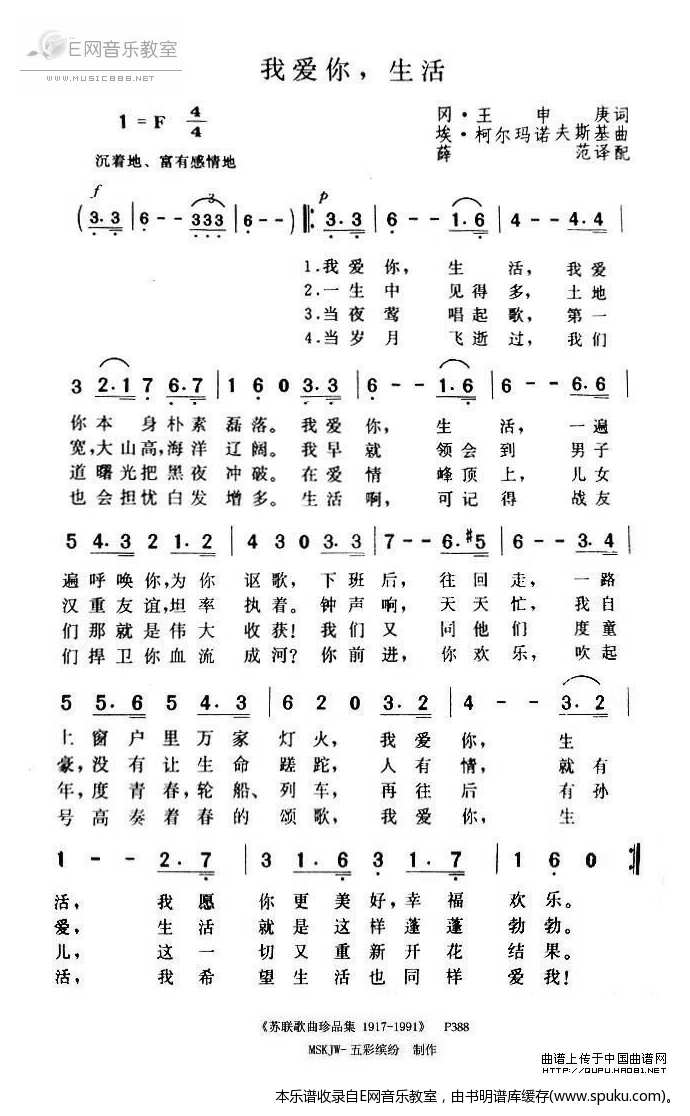 E网音乐教室
WWW.MUSIC888.NET
我爱你，生活
1 = F 4/4
冈·王申庚词
埃·柯尔玛诺夫斯基曲
薛范译配
沉着地、富有感情地
f p
( 3. 3 | 6 - - 333 | 6 - - ) ‖: 3. 3 | 6 - - 1. 6 | 4 - - 4. 4 |
1.我爱你， 生活，我爱
2.一生中 见得多，土地
3.当夜莺 唱起歌，第一
4.当岁月 飞逝过，我们
3 2. 1 7 6. 7 | 1 6 0 3. 3 | 6 - - 1. 6 | 6 - - 6. 6 |
你本身朴素磊落。我爱你， 生活，一遍
宽，大山高，海洋辽阔。我早就 领会到 男子
道曙光把黑夜冲破。在爱情 峰顶上，儿女
也会担忧白发增多。生活啊， 可记得 战友
5 4. 3 2 1. 2 | 4 3 0 3. 3 | 7 - - 6. #5 | 6 - - 3. 4 |
遍呼唤你，为你讴歌，下班后，往回走，一路
汉重友谊，坦率执着。钟声响，天天忙，我自
们那就是伟大收获！我们又 同他们 度童
们捍卫你血流成河？你前进，你欢乐，吹起
5 5. 6 5 4. 3 | 6 2 0 3. 2 | 4 - - 3. 2 |
上窗户里万家灯火，我爱你，生
豪，没有让生命蹉跎，人有情，就有
年，度青春，轮船、列车，再往后 有孙
号高奏着春的颂歌，我爱你，生
1 - - 2. 7 | 3 1. 6 3 1. 7 | 1 6 0 :‖
活，我愿你更美好，幸福欢乐。
爱，生活就是这样蓬蓬勃勃。
儿，这一切又重新开花结果。
活，我希望生活也同样爱我！
《苏联歌曲珍品集 1917-1991》 P388
MSKJW-五彩缤纷 制作
曲谱上传于中国曲谱网
HTTP://QUPU.HAO81.NET
本乐谱收录自E网音乐教室，由书明谱库缓存(www.spuku.com)。